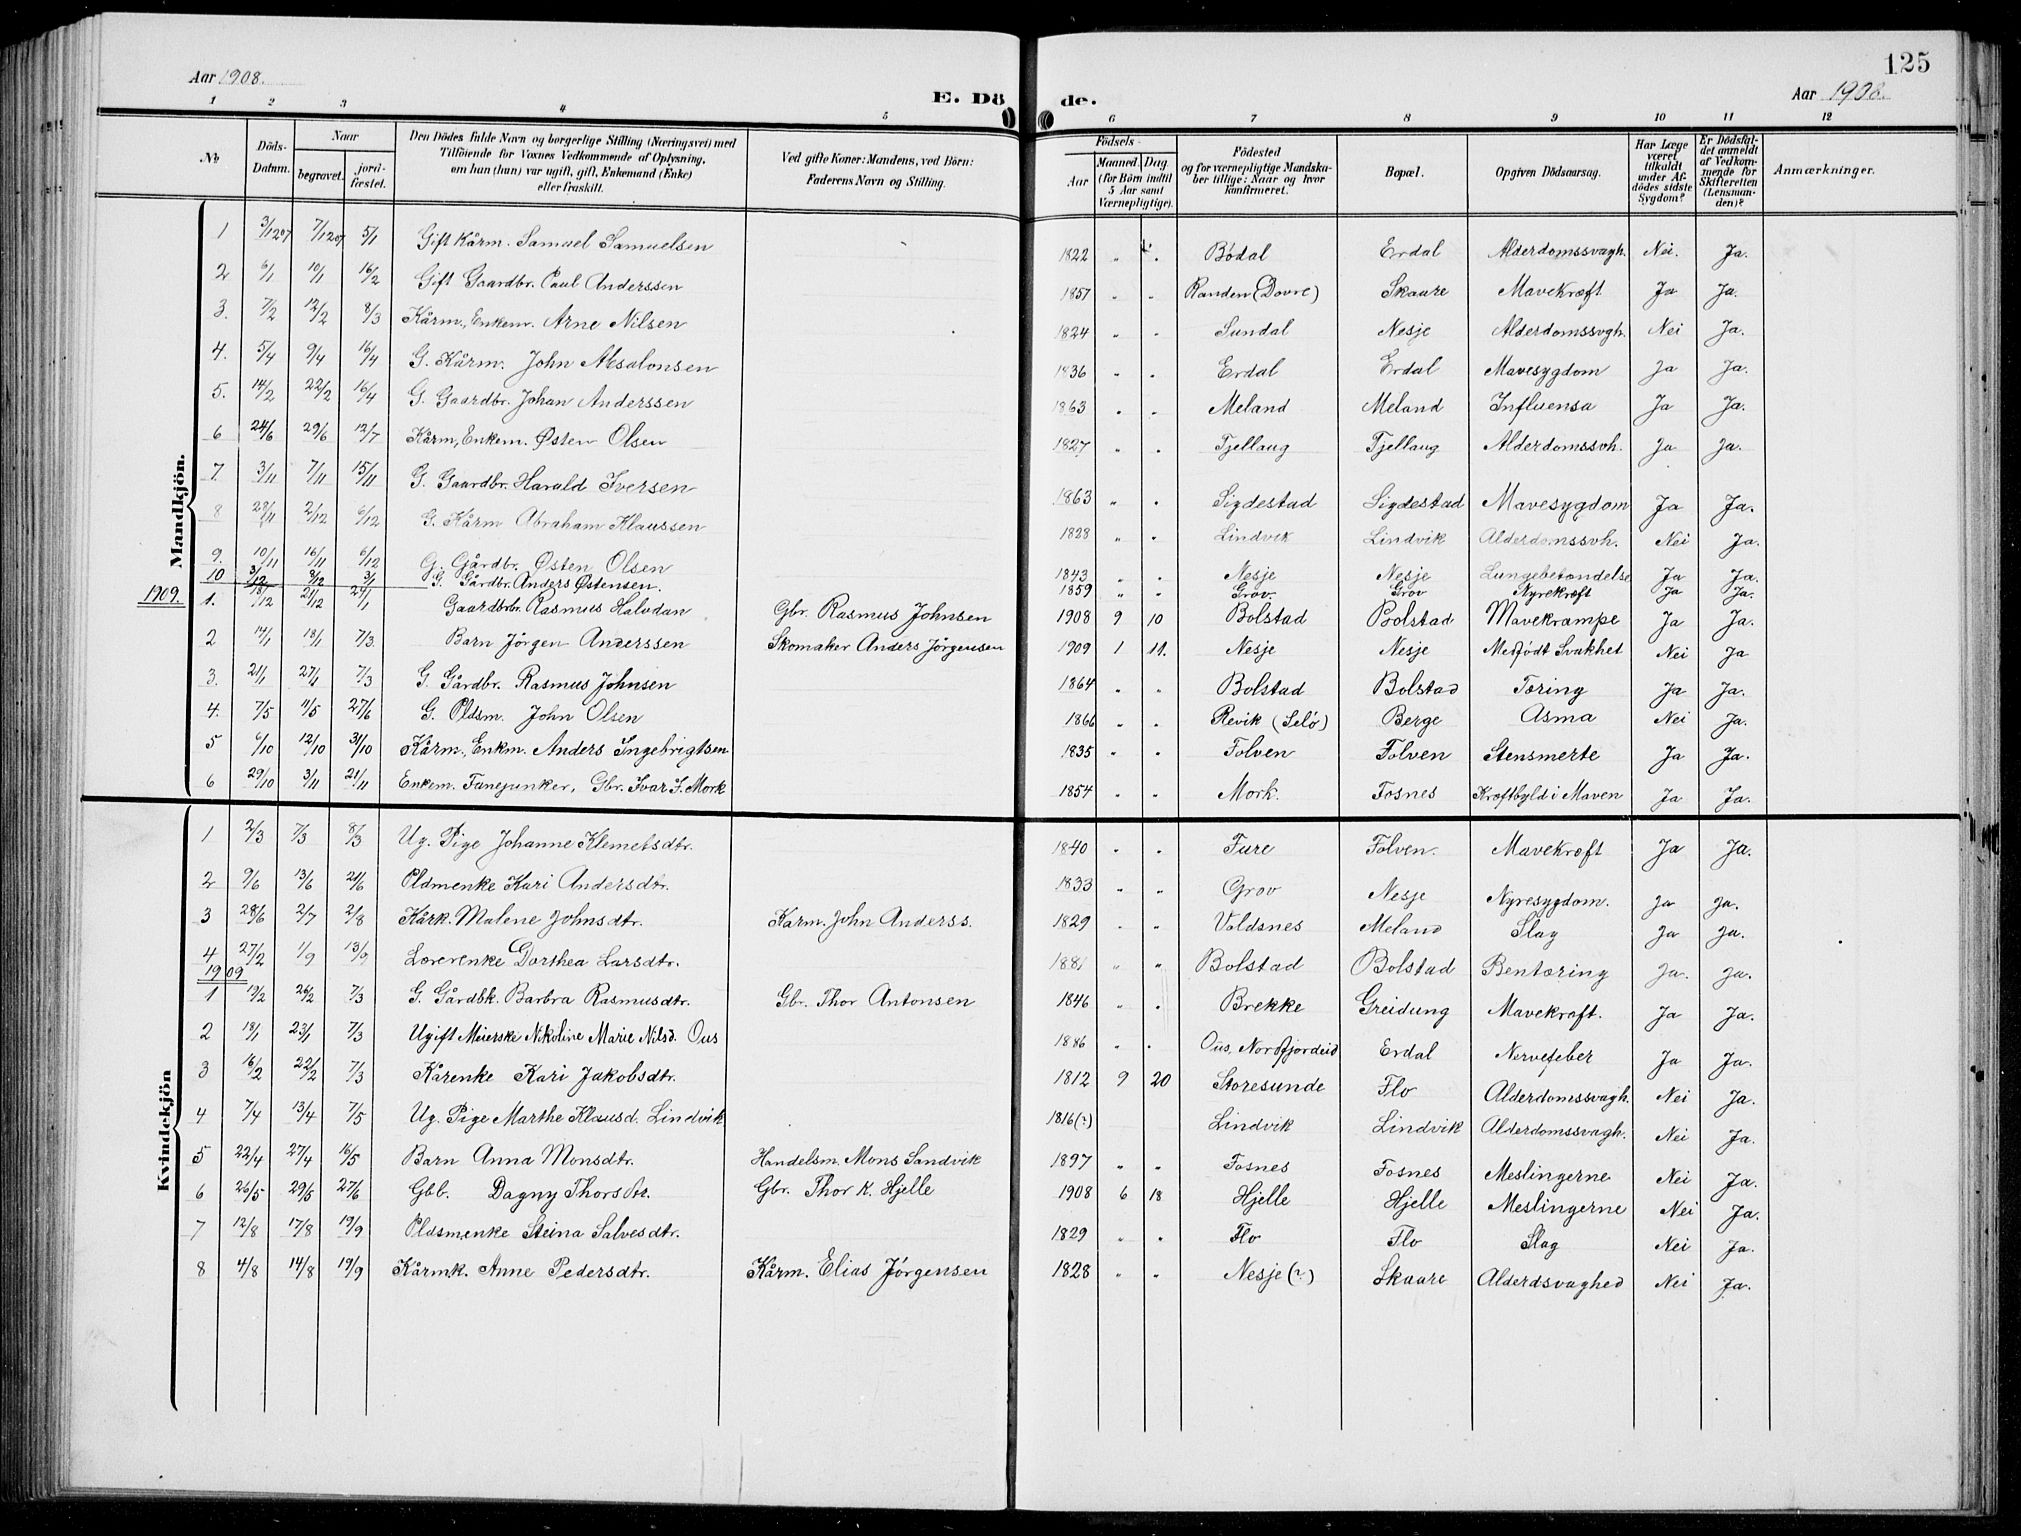 125
Aar 1908.
Aar 1908.
E. Dö de.
1 2 3 4 5 6 7 8 9 10 11 12
No
Döds-Datum.
Naar
begravet.
jord-fæstet.
Den Dödes fulde Navn og borgerlige Stilling (Næringsvei) med
Tilföiende for Voxnes Vedkommende af Oplysning,
om han (hun) var ugift, gift, Enkemand (Enke)
eller fraskilt.
Ved gifte Koner: Mandens, ved Börn:
Faderens Navn og Stilling.
Födsels-
Aar
Maaned. Dag.
(for Börn indtil
5 Aar samt
Værnepligtige).
Födested
og for værnepligtige Mandska-
ber tillige: Naar og hvor
konfirmeret.
Bopæl.
Opgiven Dödsaarsag.
Har Læge
været
tilkaldt
under Af-
dödes sidste
Sygdom?
Er Dödsfal-
det anmeldt
af Vedkom-
mende for
Skifteretten
(Lensman-
den)?
Anmærkninger.
Mandkjön.
1 3/12 07 7/12 07 5/1 Gift Kårm. Samuel Samuelsen 1822 " . Bødal Erdal Alderdomssvagh. Nei. Ja.
2 6/1 10/1 16/2 Gift Gaardbr. Paul Anderssen 1857 " " Randen (Dovre) Skaare Mavekræft Ja Ja.
3. 7/2 12/2 8/3 Kårm., Enkem. Arne Nilsen 1824 " . Sundal Nesje Alderdomssvgh. Nei Ja.
4. 5/4 9/4 16/4 G. Kårm. John Absalonsen 1836 " . Erdal Erdal Mavesygdom Ja Ja.
5. 14/2 22/2 16/4 G. Gaardbr. Johan Anderssen 1863 " . Meland Meland Influensa Ja Ja.
6 24/6 29/6 12/7 Kårm, Enkem. Østen Olsen 1827 " . Tjellaug Tjellaug Alderdomssvh. Ja Ja.
7 3/11 7/11 15/11 G. Gaardbr. Harald Iversen 1863 " . Sigdestad Sigdestad Mavesygdom Ja Ja.
8 28/11 2/12 6/12 G. Kårm Abraham Klaussen 1828 " . Lindvik Lindvik Alderdomssvh. Nei Ja.
9. 10/11 16/11 6/12 G. Gårdbr. Østen Olsen 1843 " . Nesje Nesje Lungebetændelse Ja Ja.
10 3/12 8/12 3/1 G. Gårdbr. Anders Østensen. 1859 " " Grov. Grov Nyrekræft Ja Ja.
1909. 1. 18/12 21/12 24/1 Gaardbrbr. Rasmus Halvdan Gbr. Rasmus Johnsen 1908 9 10 Bolstad Bolstad Mavekrampe Ja Ja.
2 14/1 18/1 7/3 Barn Jörgen Anderssen Skomaker Anders Jörgensen 1909 1 11. Nesje Nesje Medfödt Svakhet Nei Ja
3. 21/1 27/1 7/3 G. Gårdbr. Rasmus Johnsen 1864 " " Bolstad Bolstad Tæring Ja Ja.
4. 7/5 11/5 27/6 G. Pldsm. John Olsen 1866 " . Revik (Selö) Berge Asma Nei Ja.
5 6/10 12/10 31/10 Kårm., Enkm. Anders Ingebrigtsen 1835 " . Folven Folven Stensmerte Ja Ja.
6 29/10 3/11 21/11 Enkem. Fanejunker, Gbr. Ivar I. Mork 1854 " " Mork. Fosnes Kræftbyld i Maven Ja Ja.
Kvindekjön
1 2/3 7/3 8/3 Ug. Pige Johanne Klemetsdtr. 1840 " . Fure Folven. Mavekræft Ja Ja.
2 9/6 13/6 21/6 Pldmenke Kari Andersdtr. 1833 " " Grov Nesje Nyresygdom. Ja Ja.
3 28/6 2/7 2/8 Kårk. Malene Johnsdtr. Kårm. John Anderss. 1829 " " Voldsnes Meland Slag Ja Ja.
4 27/2 1/9 13/9 Lærerenke Dorthea Larsdtr. 1881 " " Bolstad Bolstad Bentæring Ja. Ja.
1909
1 19/2 26/2 7/3 G. Gårdbk. Barbra Rasmusdtr. Gbr. Thor Antonsen 1846 " . Brekke Greidung Mavekræft. Ja Ja.
2 18/1 23/1 7/3 Ugift Meierske Nikoline Marie Nilsd. Ous 1886 " . Ous, Nordfjordeid Erdal Nervefeber Ja Ja.
3 16/2 22/2 7/3 Kårenke Kari Jakobsdtr. 1812 9 20 Storesunde Flo Alderdomssvagh. Nei Ja.
4 7/4 13/4 7/5 Ug. Pige Marthe Klausd. Lindvik 1816 (?) Lindvik Lindvik Alderdomssvagh. Nei Ja.
5 22/4 27/4 16/5 Barn Anna Monsdtr. Handelsm. Mons Sandvik 1897 " " Fosnes Fosnes Meslingerne Nei Ja.
6 26/5 29/5 27/6 Gbb. Dagny Thorsdtr. Gbr. Thor K. Hjelle 1908 6 18 Hjelle Hjelle Meslingerne Nei Ja.
7 12/8 17/8 19/9 Pldsmenke Steina Salvesdtr. 1829 " . Flo Flo Slag Nei Ja.
8 4/8 14/8 19/9 Kårmk. Anne Pedersdtr. Kårm. Elias Jörgensen 1828 " " Nesje (?) Skaare Alderdsvaghed Nei Ja.